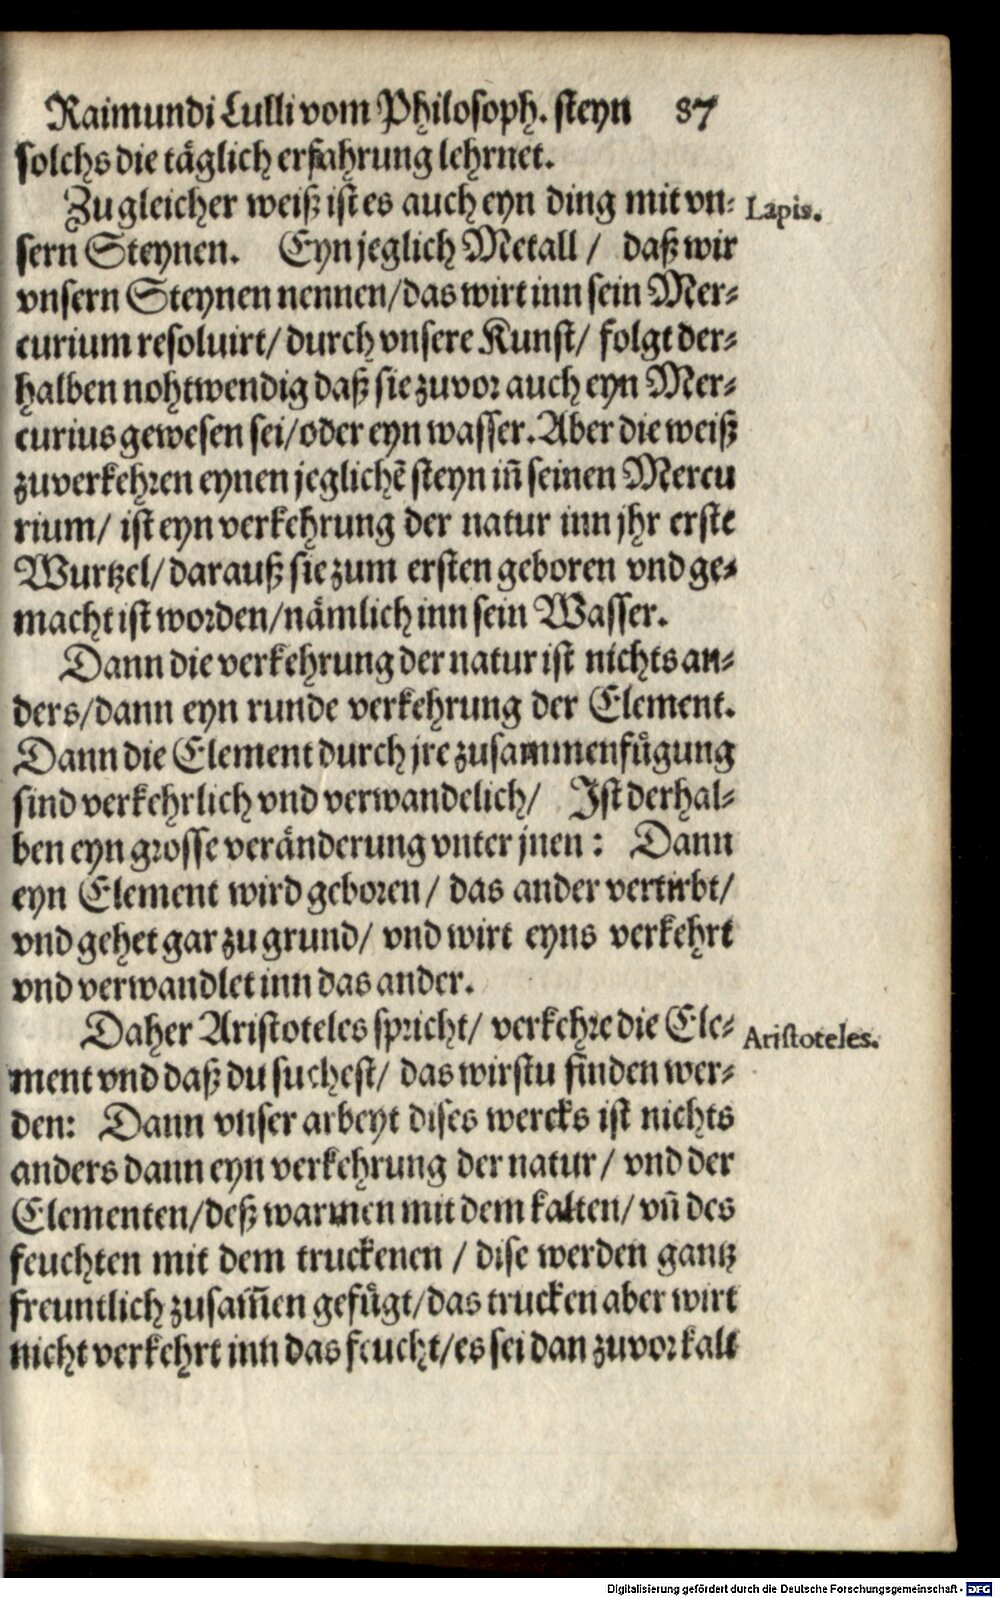 Raimundi Lulli vom Philosoph. steyn 37
solchs die täglich erfahrung lehrnet.
Zu gleicher weiß ist es auch eyn ding mit vn- Lapis.
sern Steynen. Eyn jeglich Metall / daß wir
vnsern Steynen nennen/das wirt inn sein Mer-
curium resoluirt/ durch vnsere Kunst/ folgt der-
halben nohtwendig daß sie zuvor auch eyn Mer-
curius gewesen sei/oder eyn wasser. Aber die weiß
zuverkehren eynen jeglichẽ steyn iñ seinen Mercu
rium/ ist eyn verkehrung der natur inn jhr erste
Wurtzel/ darauß sie zum ersten geboren vnd ge-
macht ist worden/nämlich inn sein Wasser.
Dann die verkehrung der natur ist nichts an-
ders/dann eyn runde verkehrung der Element.
Dann die Element durch jre zusammenfügung
sind verkehrlich vnd verwandelich/ Ist derhal-
ben eyn grosse veränderung vnter jnen: Dann
eyn Element wird geboren/ das ander vertirbt/
vnd gehet gar zu grund/ vnd wirt eyns verkehrt
vnd verwandlet inn das ander.
Daher Aristoteles spricht/ verkehre die Ele- Aristoteles.
ment vnd daß du suchest/ das wirstu finden wer-
den: Dann vnser arbeyt dises wercks ist nichts
anders dann eyn verkehrung der natur/ vnd der
Elementen/deß warmen mit dem kalten/ vñ des
feuchten mit dem truckenen / dise werden gantz
freuntlich zusam̃en gefügt/das trucken aber wirt
nicht verkehrt inn das feucht/es sei dan zuvor kalt
Digitalisierung gefördert durch die Deutsche Forschungsgemeinschaft - DFG